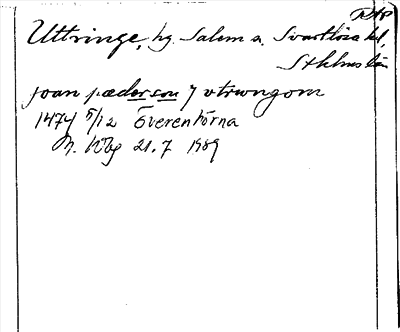 Uttringe, hg. Salem s. Svartlösa hd,
Sthlms län
joan pæderson j vtrwngom
1474 5/12 Överenhörna
21.7 1989